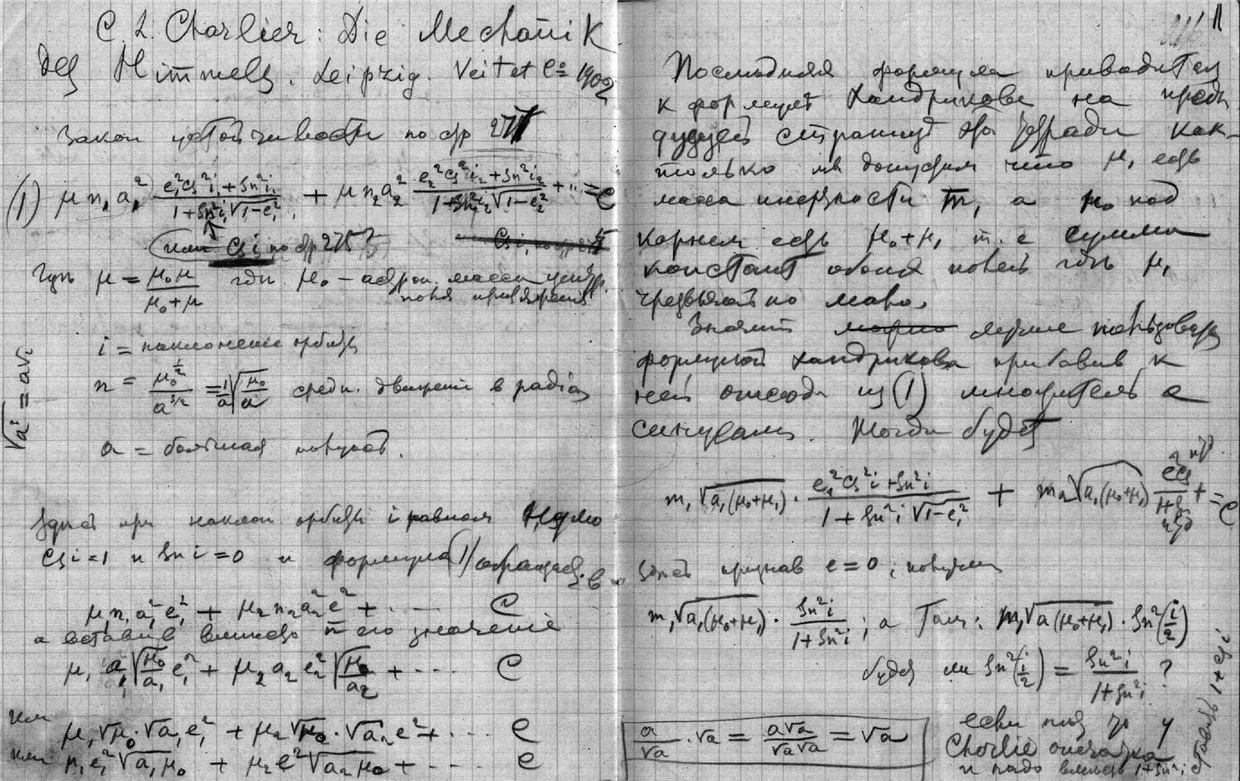 C. L. Charlier: Die Mechanik
des Himmels. Leipzig. Veit et Co 1902
Закон устойчивости по стр 277
(1) μ n₁ a₁² (e₁² Cs² i₁ + Sn² i₁)/(1 + Sn² i₁ √(1-e₁²)) + μ n₂ a₂² (e₂² Cs² i₂ + Sn² i₂)/(1 + Sn² i₂ √(1-e₂²)) + ... = C
или Cs i по стр 275
Гдѣ μ = μ₀μ/(μ₀+μ) гдѣ μ₀ – астрон. масса центр.
поля притяжения
i = наклонение орбиты
n = μ₀^(1/2)/a^(3/2) = 1/a √(μ₀/a) средн. движение в радиа
√a² = a√1
a = большая полуось.
Здесь при наклон орбиты i равном нулю
Cs i = 1 и Sn i = 0 и формула (1) обращает. в
μ₁ n₁ a₁² e₁² + μ₂ n₂ a₂² e² + ... C
а вставив вместо n его значение
μ₁ a₁ √(μ₀/a₁) e₁² + μ₂ a₂ e₂² √(μ₀/a₂) + ... C
или
μ₁ √μ₀ · √a₁ e₁² + μ₂ √μ₀ · √a₂ e² + ... C
или μ₁ e₁² √(a₁ μ₀) + μ₂ e² √(a₂ μ₀) + ... C
11
Последняя формула приводится
к формулѣ Хандрикова на преды
дущей странице этой тетради как-
только мы допустим что μ₁ есть
масса инерзности m₁ а μ₀ под
корнем есть μ₀+μ₁ т. е сумма
констант обоих полей гдѣ μ₁
чрезвычайно мало.
Значит лучше пользоваться
формулой Хандрикова прибавив к
ней отсюда из (1) множитель с
синусами. Тогда будет
m₁ √(a₁(μ₀+μ₁)) · (e₁² Cs² i + Sn² i)/(1 + Sn² i √(1-e₁²)) + m₂ √(a₁(μ₀+μ₁)) + = C
Здесь признав e = 0; получим
m₁ √(a₁(μ₀+μ₁)) · Sn² i/(1+Sn² i); а Там: m₁ √(a(μ₀+μ₁)) · Sn²(i/2)
будет ли Sn²(i/2) = Sn² i/(1+Sn² i) ?
a/√a · √a = a√a/(√a√a) = √a
если нет то у
Charlie опечатка
и надо вместо 1+Sn² i
ставить 1+Cs i